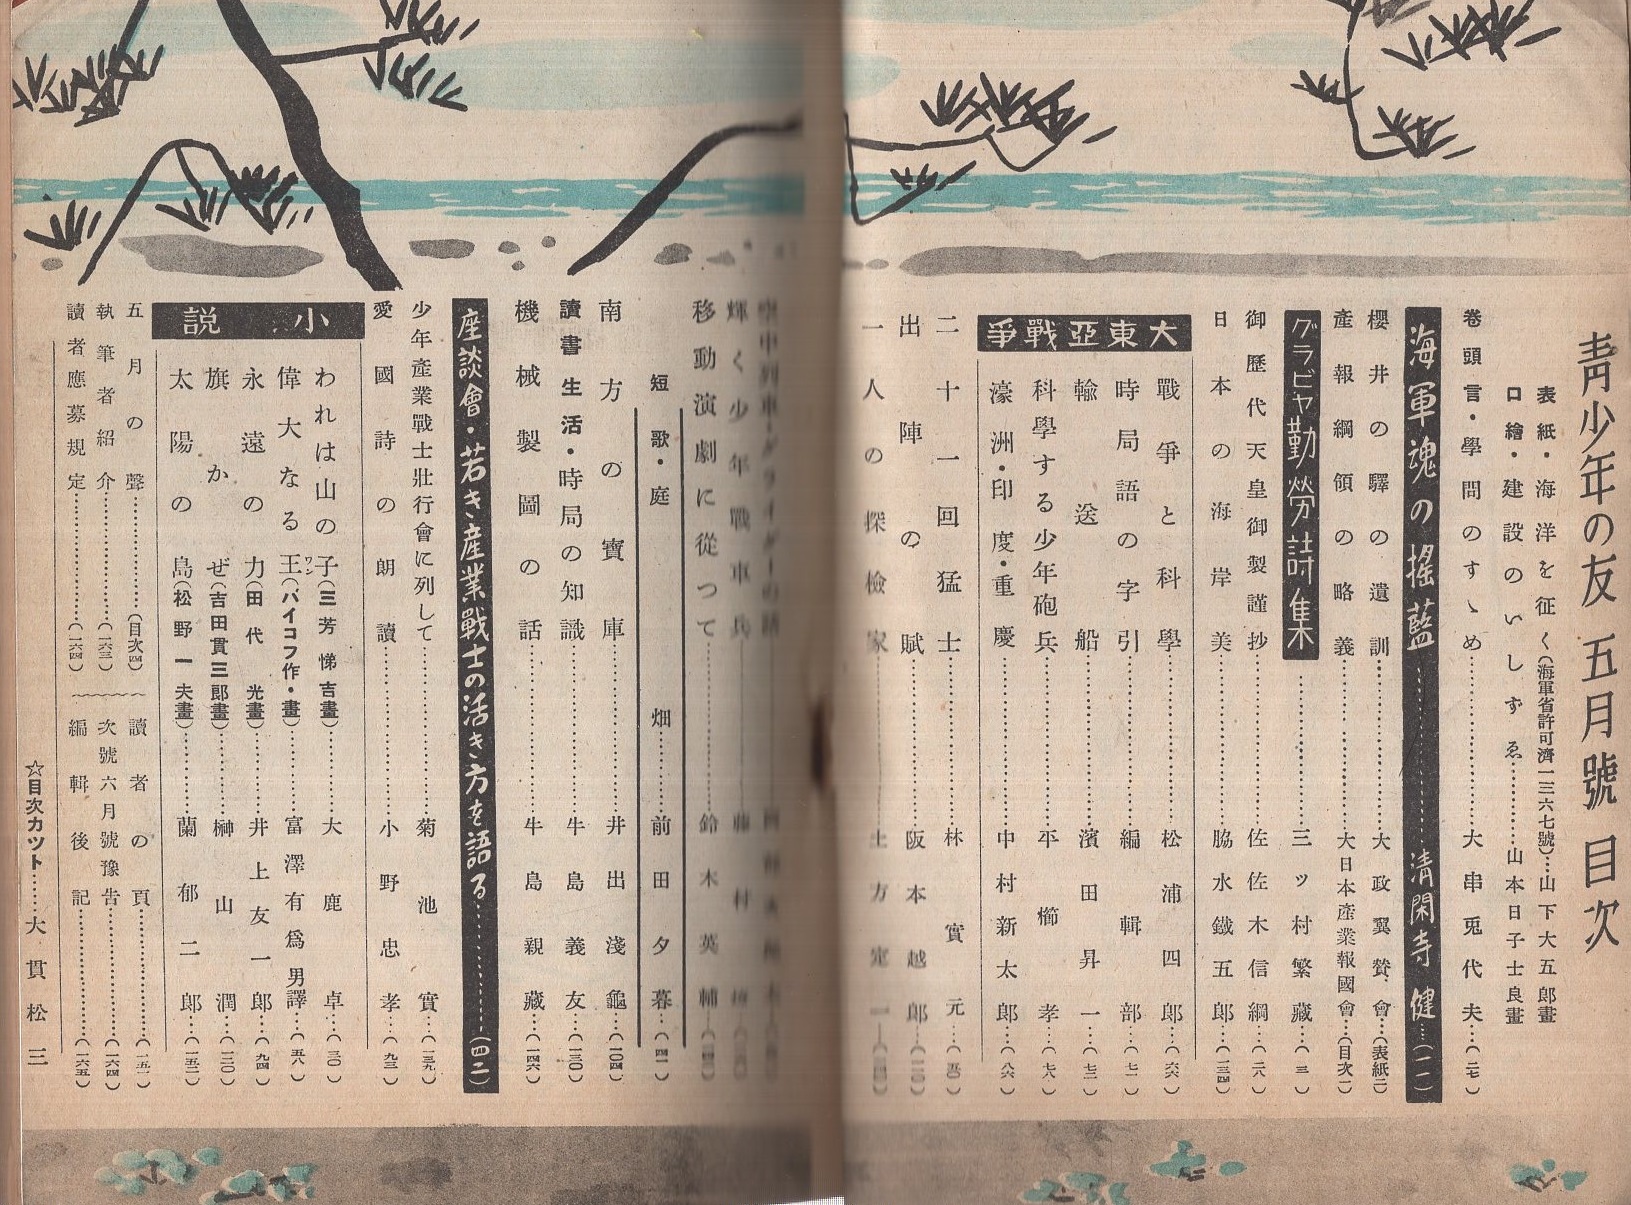 靑少年の友 五月號 目次
表紙・海洋を征く(海軍省許可濟一三六七號)…山下大五郎畫
口繪・建設のいしずゑ…………山本日子士良畫
卷頭言・學問のすゝめ…………大串兎代夫…(一七)
海軍魂の搖籃…………淸閑寺 健…(一一)
櫻井の驛の遺訓…………大政翼贊會…(表紙二)
產報綱領の略義…………大日本產業報國會…(目次一)
グラビヤ勤勞詩集…………三ッ村繁藏…(三)
御歷代天皇御製謹抄…………佐佐木信綱…(二八)
日本の海岸美…………脇水鐵五郎…(一三四)
大東亞戰爭
戰爭と科學…………松浦四郎…(六六)
時局語の字引…………編輯部…(七一)
輸送船…………濱田昇一…(七三)
科學する少年砲兵…………平櫛孝…(七八)
濠洲・印度・重慶…………中村新太郎…(八六)
二十一回猛士…………林實元…(五〇)
出陣の賦…………阪本越郎…(一二〇)
一人の探檢家…………土方定一
輝く少年戰車兵
移動演劇に從つて…………鈴木英輔
短歌・庭 畑…………前田夕暮…(四一)
南方の寶庫…………井出淺龜…(一〇四)
讀書生活・時局の知識…………牛島義友…(一三〇)
機械製圖の話…………牛島親藏…(一四六)
座談會・若き產業戰士の活き方を語る…………(四二)
少年產業戰士壯行會に列して…………菊池實…(一三九)
愛國詩の朗讀…………小野忠孝…(九三)
小說
われは山の子(三芳悌吉畫)…………大鹿卓…(三〇)
偉大なる王(ワン)(バイコフ作・畫)…………富澤有爲男譯…(五八)
永遠の力(田代光畫)…………井上友一郎…(九四)
旗かぜ(吉田貫三郞畫)…………榊山潤…(一二〇)
太陽の島(松野一夫畫)…………蘭郁二郎…(一五二)
五月の聲…………(目次四)
執筆者紹介…………(一六三)
讀者應募規定…………(一六四)
讀者の頁…………(一五一)
次號六月號豫告…………(一六四)
編輯後記…………(一六五)
☆目次カツト……大貫松三